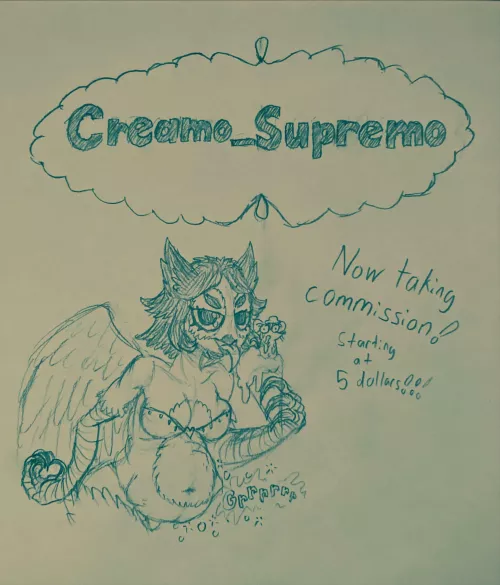 Creamo_Supremo
Now taking
commission!
Starting
at
5 dollars!!!
Grrrrrr